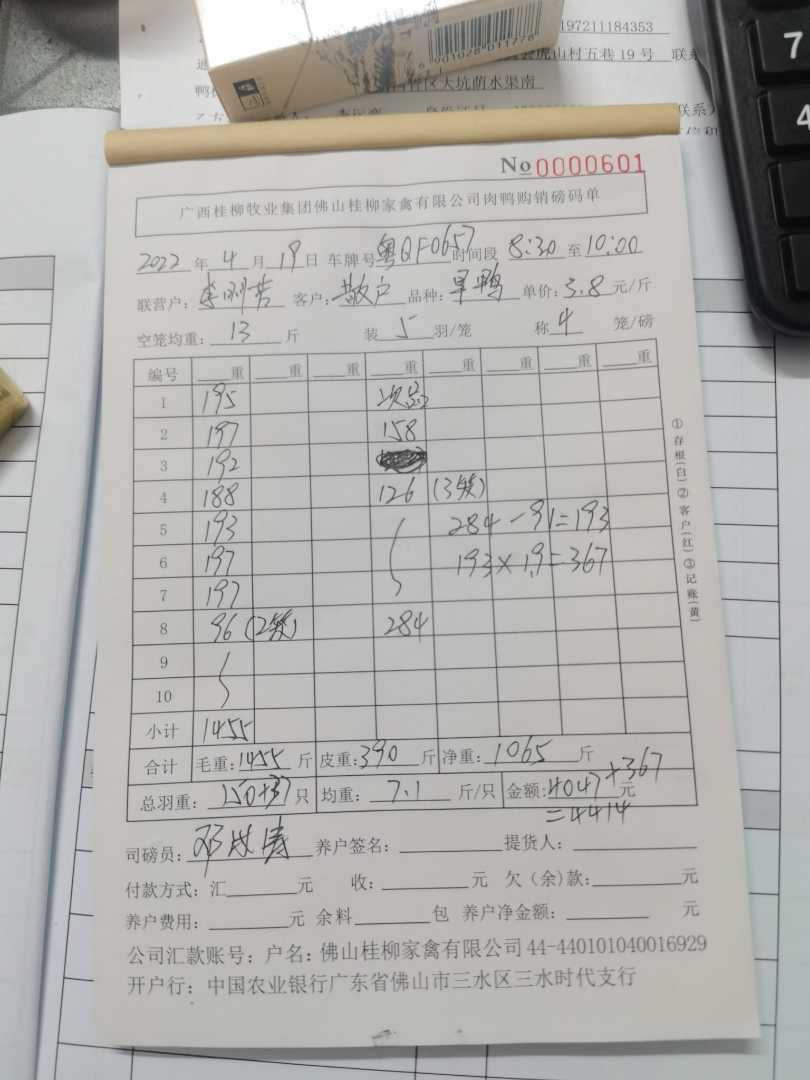 197211184353
虎山村五巷 19 号 联系
6 901028 011778
区大坑荫水渠南
7
4
№ 0000601
广西桂柳牧业集团佛山桂柳家禽有限公司肉鸭购销磅码单
2022 年 4 月 19 日 车牌号 粤QF0657 时间段 8:30 至 10:00
联营户: 客户: 散户 品种: 旱鸭 单价: 3.8 元/斤
空笼均重: 13 斤 装 5 羽/笼 称 4 笼/磅
编号 重 重 重 重 重 重 重 重
1 195 次品
2 197 158
3 192
4 188 126 (3笼)
5 193 284-91=193
6 197 193×1.9=367
7 197
8 96 (2笼) 284
9
10
小计 1455
合计 毛重: 1455 斤 皮重: 390 斤 净重: 1065 斤
总羽重: 150+37 只 均重: 7.1 斤/只 金额: 4047+367 元
=4414
司磅员: 养户签名: 提货人:
付款方式: 汇 元 收: 元 欠(余)款: 元
养户费用: 元 余料 包 养户净金额: 元
公司汇款账号: 户名: 佛山桂柳家禽有限公司 44-440101040016929
开户行: 中国农业银行广东省佛山市三水区三水时代支行
①存根(白)②客户(红)③记账(黄)